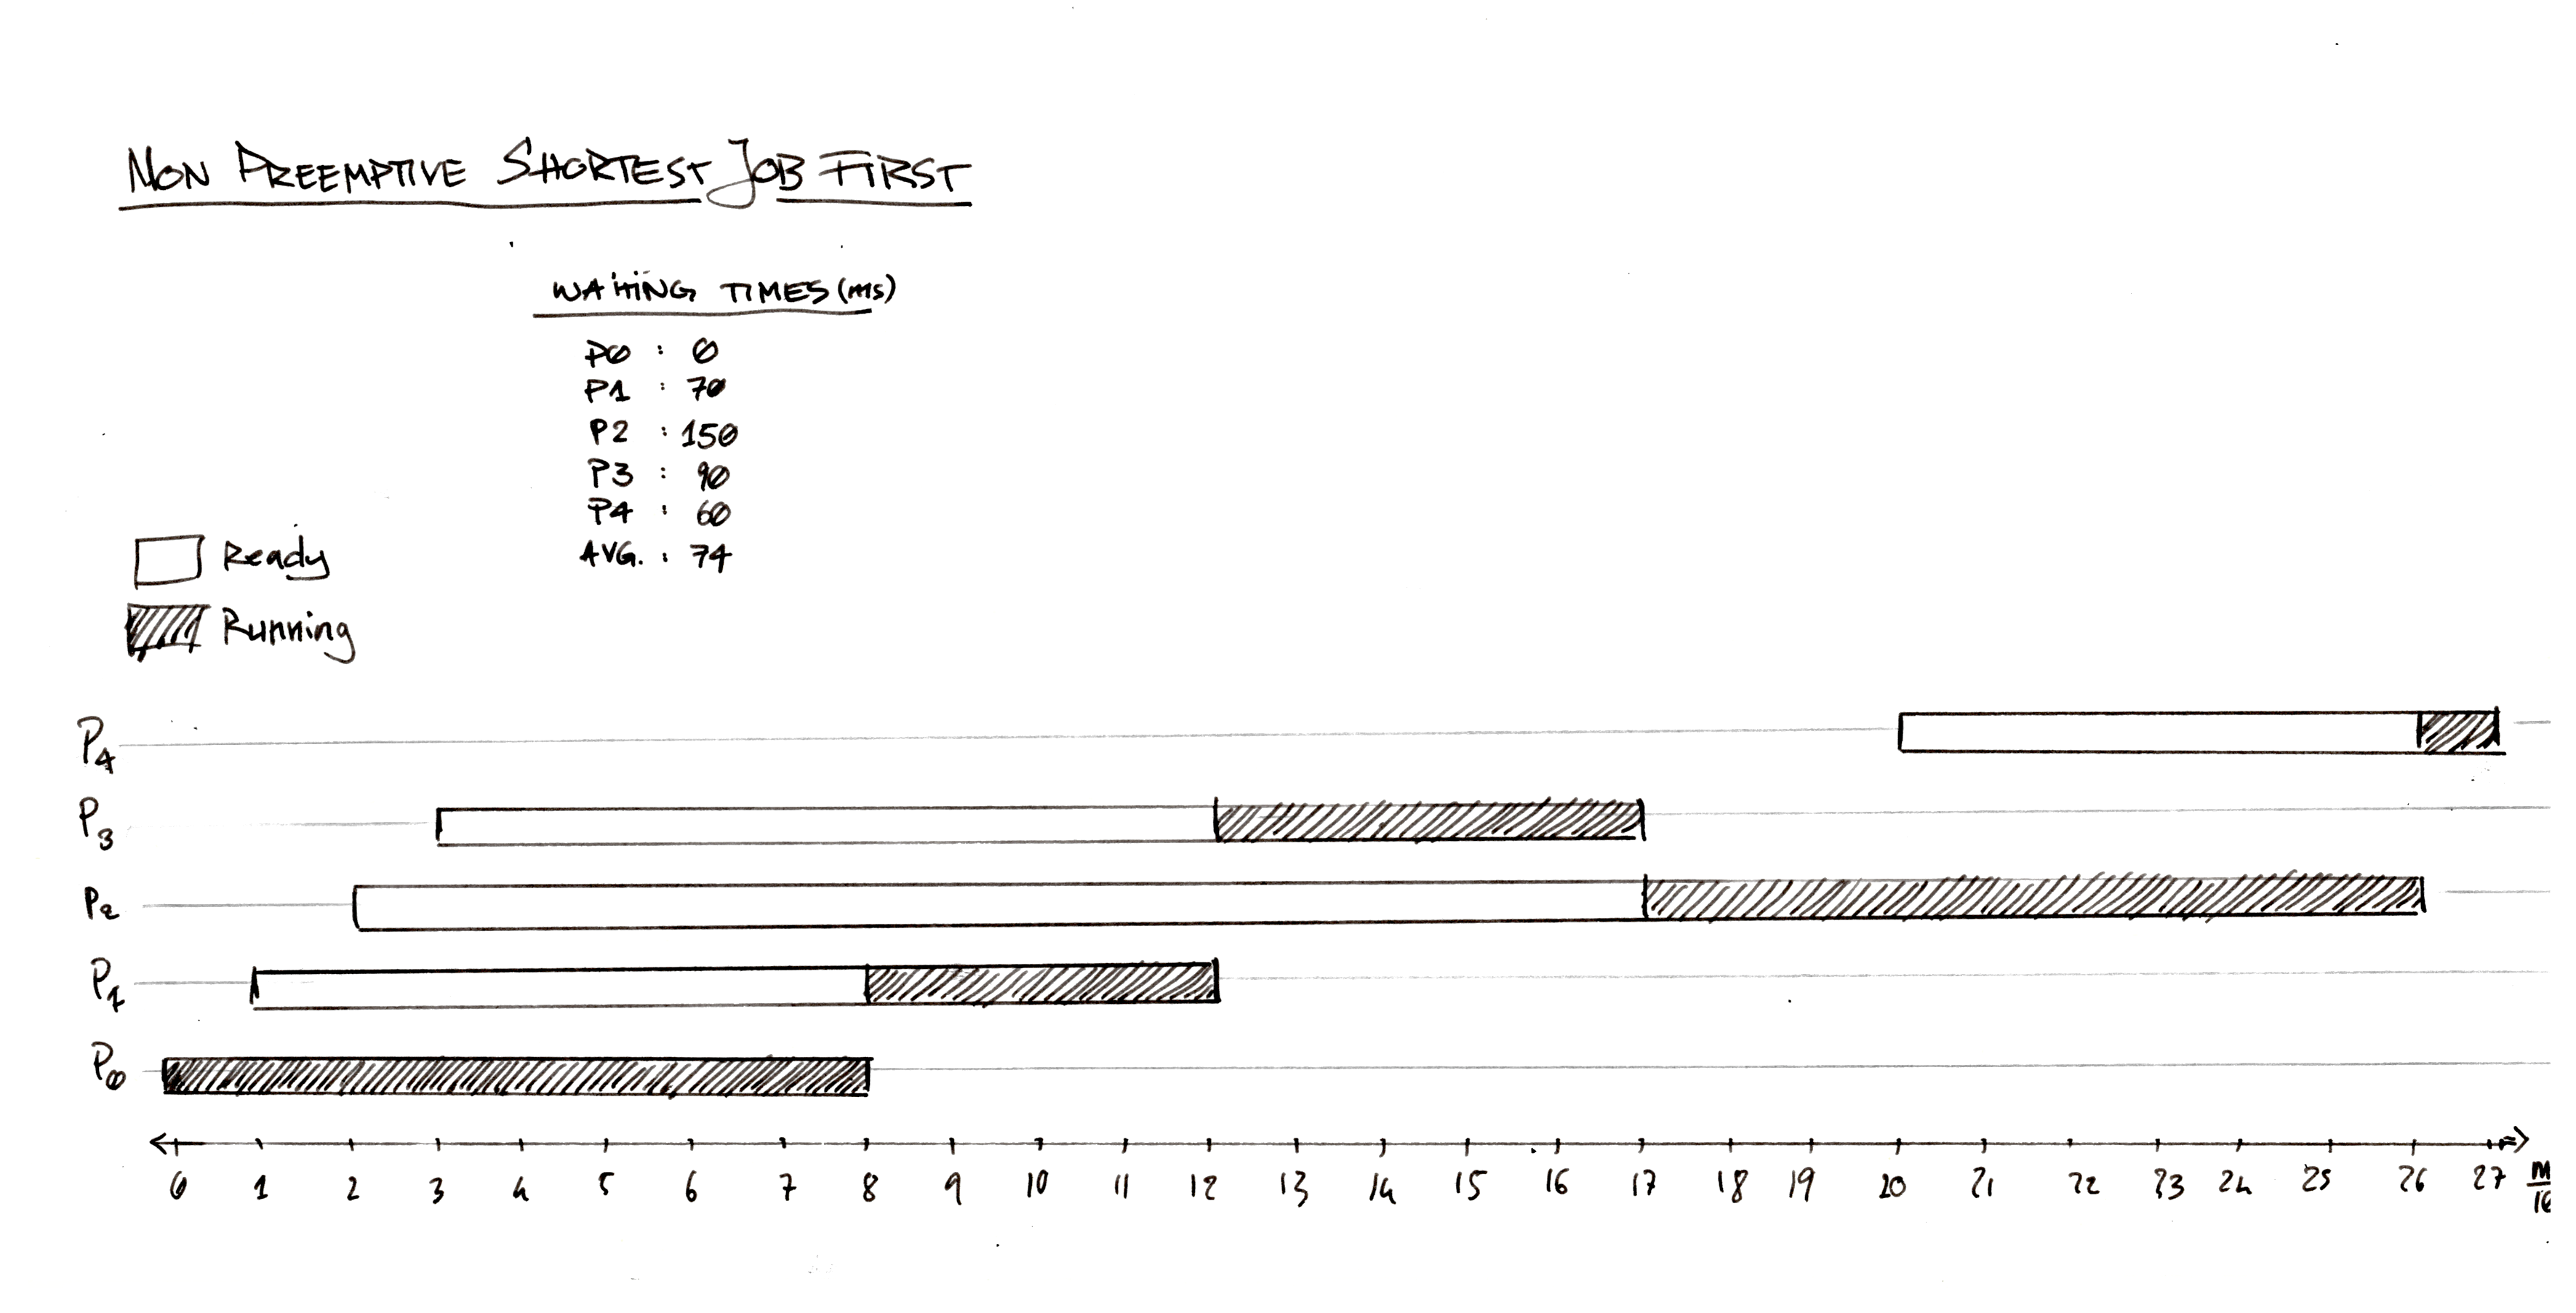 NON PREEMPTIVE SHORTEST JOB FIRST
WAITING TIMES (ms)
P0 : 0
P1 : 70
P2 : 150
P3 : 90
P4 : 60
AVG. : 74
Ready
Running
P4
P3
P2
P1
P0
0 1 2 3 4 5 6 7 8 9 10 11 12 13 14 15 16 17 18 19 20 21 22 23 24 25 26 27